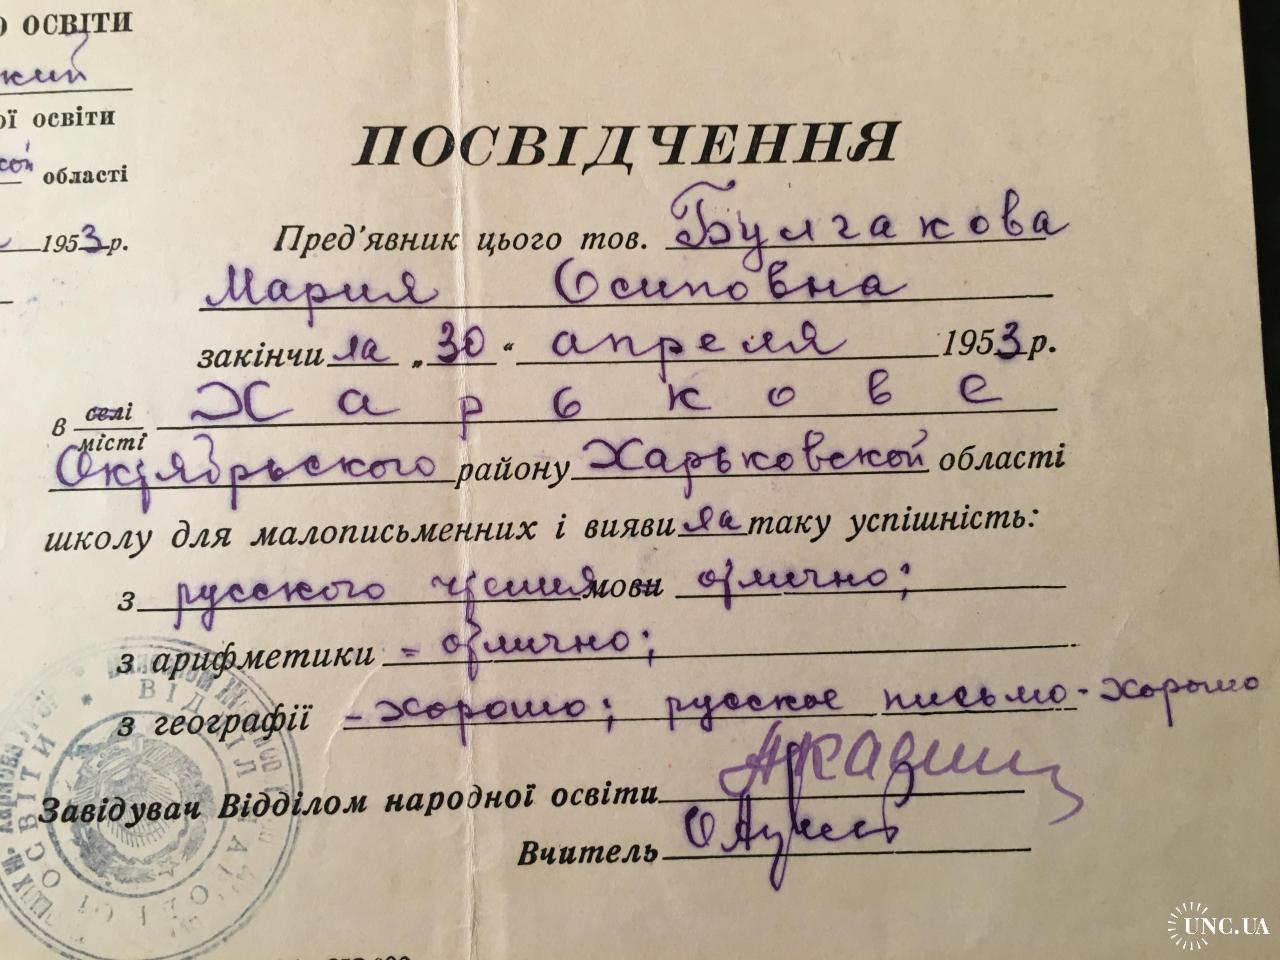 О ОСВІТИ
кий
ої освіти
кой області
1953 р.
ПОСВІДЧЕННЯ
Пред'явник цього тов. Булгакова
Мария Осиповна
закінчила „30“ апреля 1953 р.
в селі
місті Харькове
Октябрьского району Харьковской області
школу для малописьменних і виявила таку успішність:
з русского чтения мови отлично;
з арифметики - отлично;
з географії - хорошо; русское письмо - хорошо
Завідувач Відділом народної освіти
Вчитель
ВІДДІЛ НАРОДНОЇ ОСВІТИ
UNC.UA